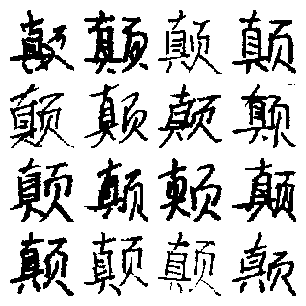 颠颠颠颠
颠颠颠颠
颠颠颠颠
颠颠颠颠